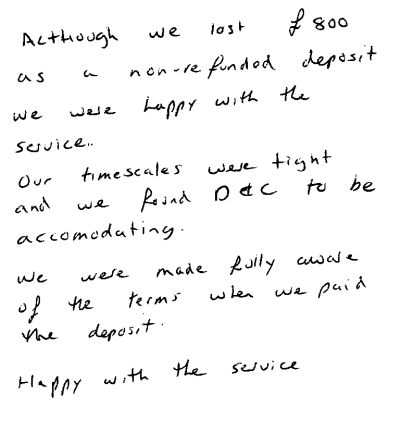 Although we lost £800
as a non-refunded deposit
we were happy with the
service..
Our timescales were tight
and we found D&C to be
accomodating.
We were made fully aware
of the terms when we paid
the deposit.
Happy with the service